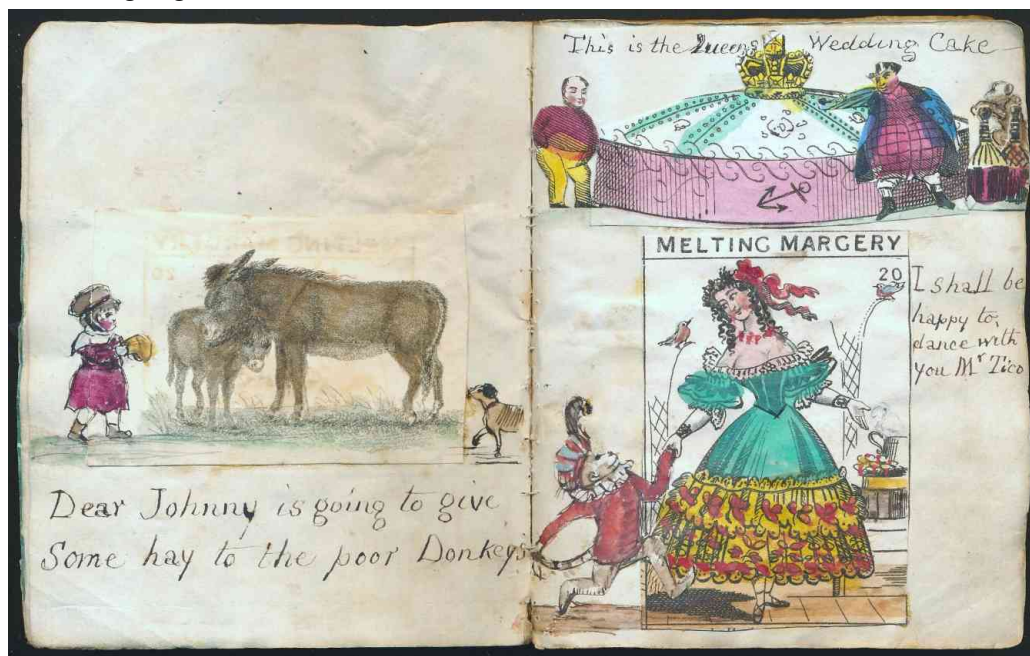 Dear Johnny is going to give
Some hay to the poor Donkeys
This is the Queens Wedding Cake
MELTING MARGERY
20
I shall be
happy to
dance with
you Mr Tico